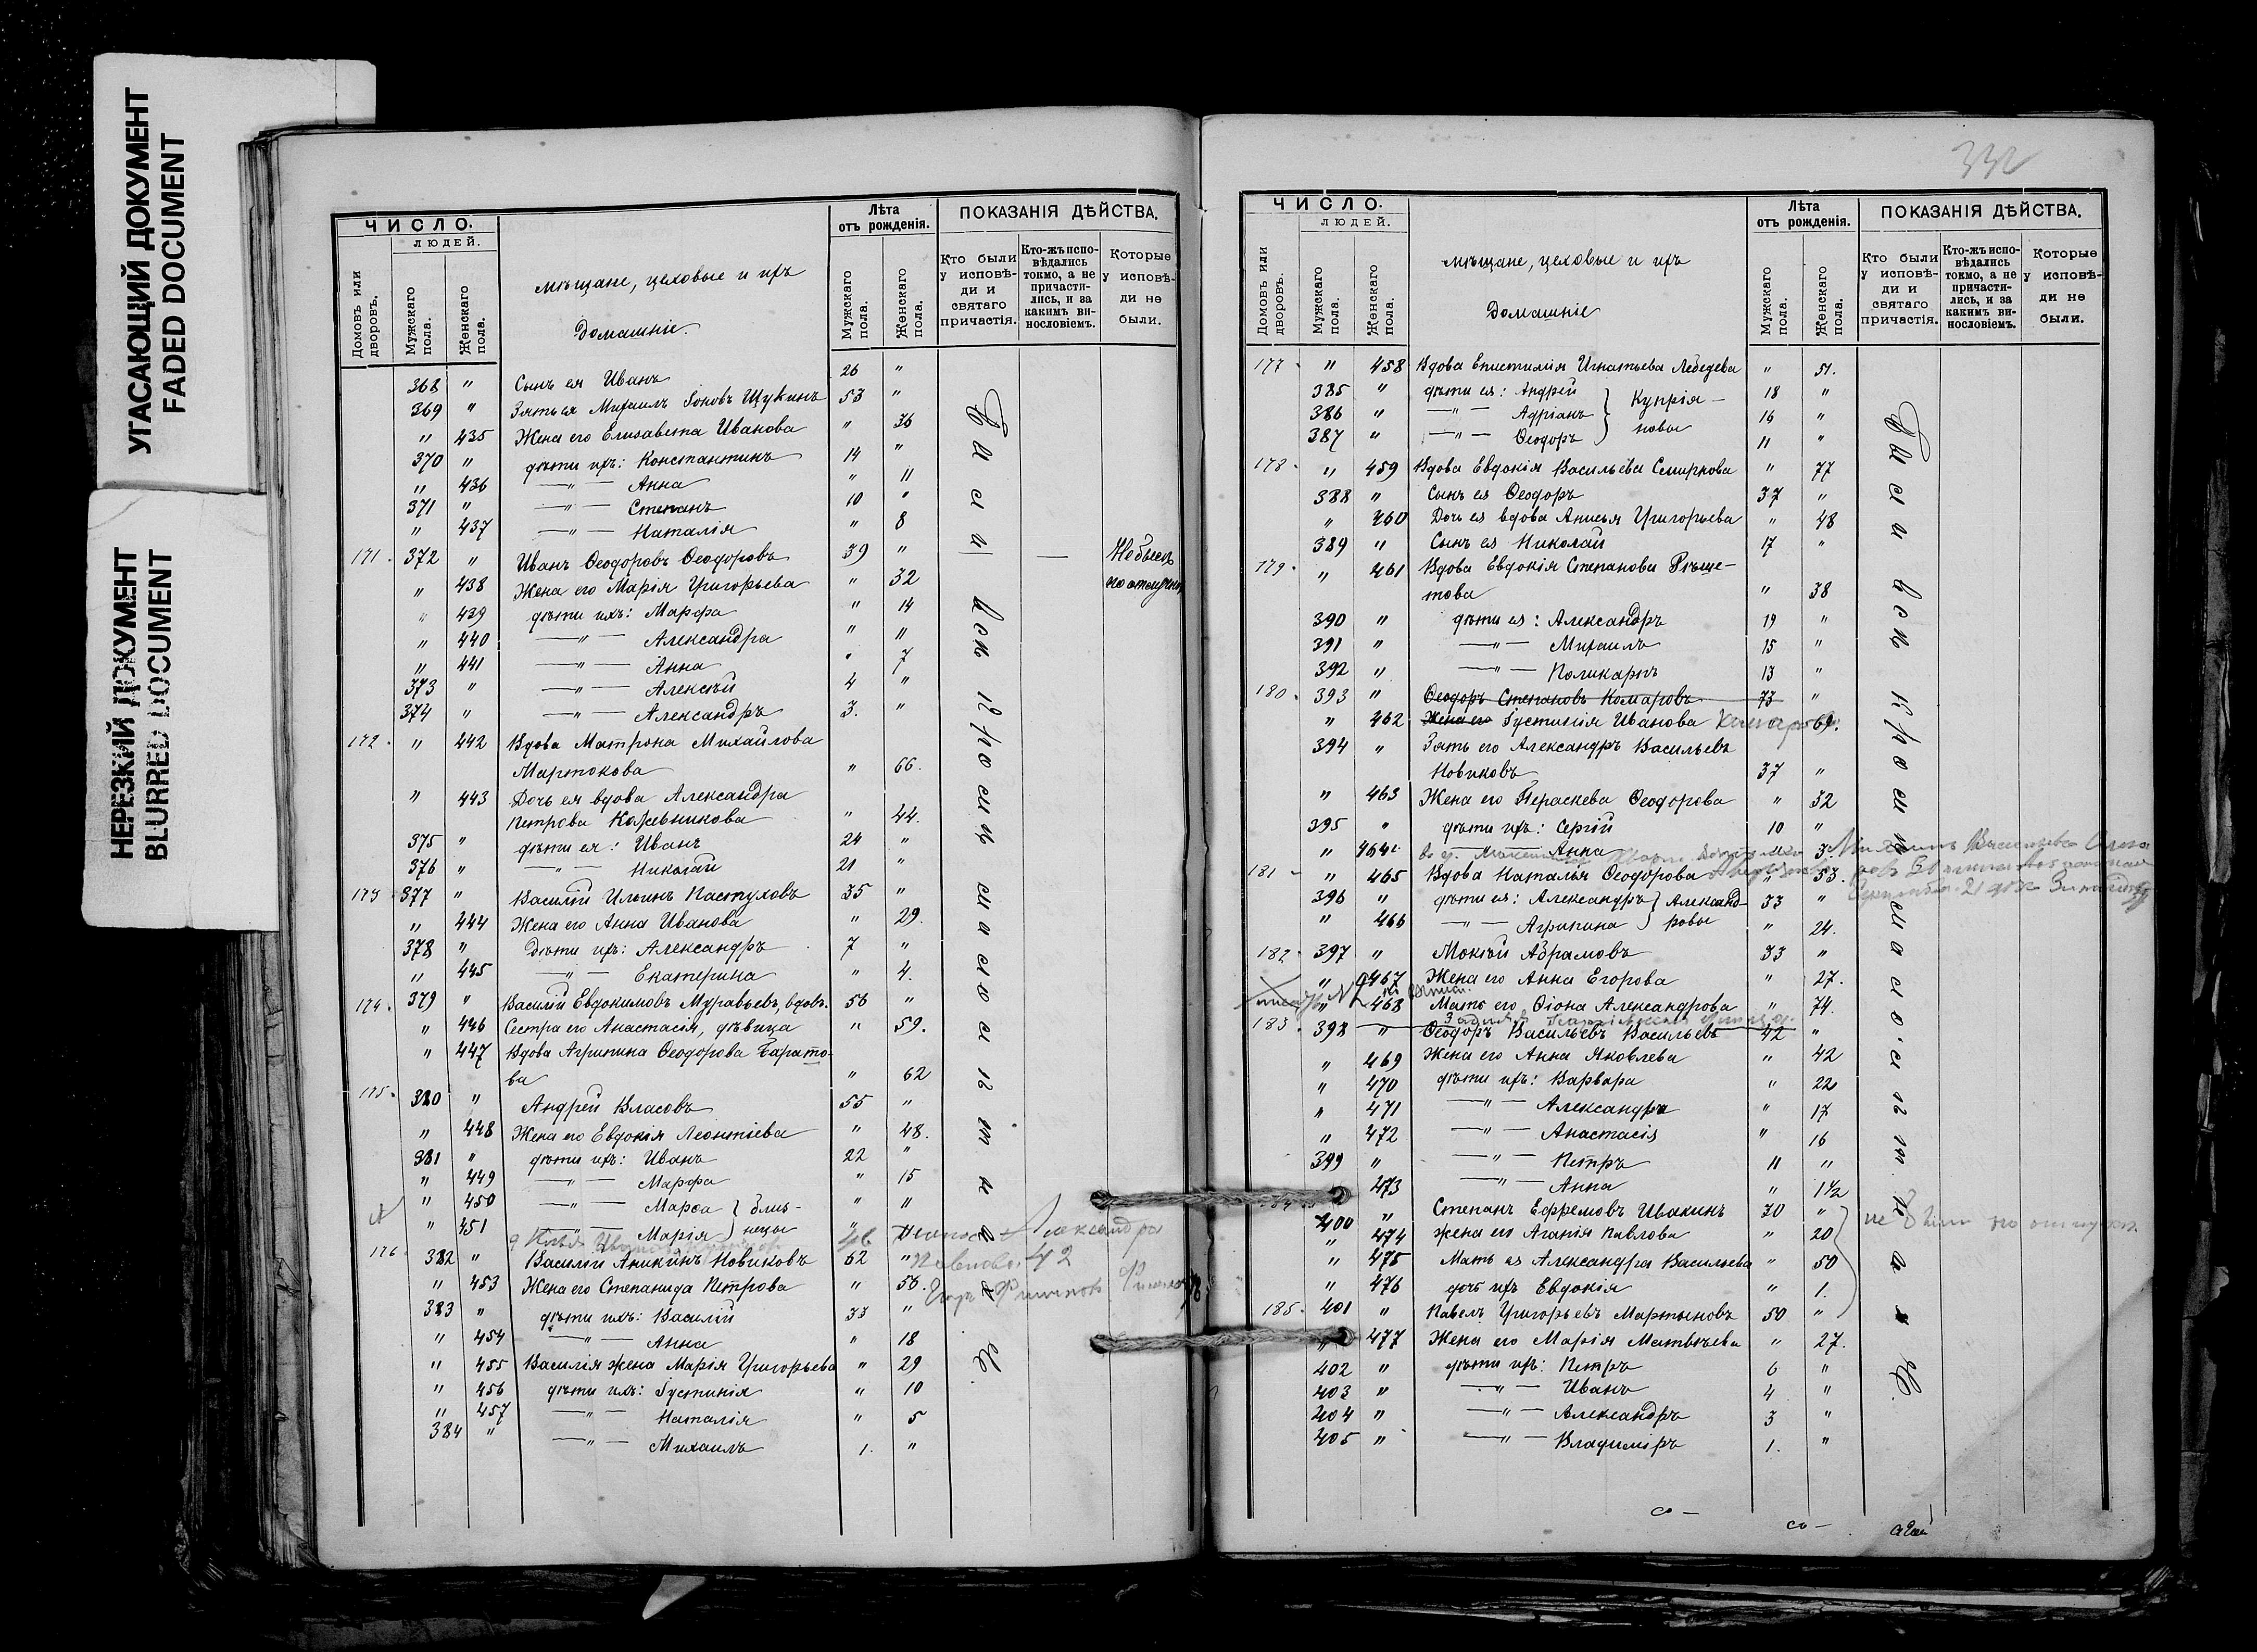 УГАСАЮЩИЙ ДОКУМЕНТ
FADED DOCUMENT
НЕРЕЗКИЙ ДОКУМЕНТ
BLURRED DOCUMENT
ЧИСЛО.
ЛЮДЕЙ.
Домовъ или дворовъ.
Мужскаго пола.
Женскаго пола.
мѣщане, цеховые и ихъ
Домашніе
Лѣта отъ рожденія.
Мужскаго пола.
Женскаго пола.
ПОКАЗАНІЯ ДѢЙСТВА.
Кто были у исповѣди и святаго причастія.
Кто-жъ исповѣдались токмо, а не причастились, и за какимъ винословіемъ.
Которые у исповѣди не были.
368 " Сынъ ея Иванъ 26 "
369 " Зять ея Михаилъ Іоновъ Щукинъ 53 "
" 435 Жена его Елизавета Иванова " 36
370 " дѣти ихъ: Константинъ 14 "
" 436 —"— Анна " 11
371 " —"— Степанъ 10 "
" 437 —"— Наталія " 8
171. 372 " Иванъ Ѳеодоровъ Ѳеодоровъ 39 " — Не былъ
" 438 Жена его Марія Григорьева " 32 по отлучкѣ
" 439 дѣти ихъ: Марфа " 14
" 440 —"— Александра " 11
" 441 —"— Анна " 7
373 " —"— Алексѣй 4 "
374 " —"— Александръ 3. "
172. " 442 Вдова Матрона Михайлова
Мартокова " 66.
" 443 Дочь ея вдова Александра
Петрова Кожевникова " 44.
375 " дѣти ея: Иванъ 24 "
376 " —"— Николай 21 "
173. 377 " Василій Ильинъ Пастуховъ 35 "
" 444 Жена его Анна Иванова " 29.
378 " Дѣти ихъ: Александръ 7 "
" 445 —"— Екатерина " 4.
174. 379 " Василій Евдокимовъ Муравьевъ, вдовъ. 56 "
" 446 Сестра его Анастасія, дѣвица " 59.
" 447 Вдова Агрипина Ѳеодорова Барато-
ва " 62
175. 380 " Андрей Власовъ 55 "
" 448 Жена его Евдокія Леонтіева " 48.
381 " дѣти ихъ: Иванъ 22 "
" 449 —"— Марфа " 15
" 450 —"— Марѳа } близ- " 11
" 451 —"— Марія } нецы "
176. 382 " Василій Аникинъ Новиковъ 62 "
" 453 Жена его Степанида Петрова " 58.
383 " дѣти ихъ: Василій 33 "
" 454 —"— Анна " 18
" 455 Василія жена Марія Григорьева " 29
" 456 дѣти ихъ: Іустинія " 10
" 457 —"— Наталія " 5
384 " —"— Михаилъ 1. "
Были
всѣ
кромѣ
малолѣтныхъ.
332
ЧИСЛО.
ЛЮДЕЙ.
Домовъ или дворовъ.
Мужскаго пола.
Женскаго пола.
мѣщане, цеховые и ихъ
Домашніе
Лѣта отъ рожденія.
Мужскаго пола.
Женскаго пола.
ПОКАЗАНІЯ ДѢЙСТВА.
Кто были у исповѣди и святаго причастія.
Кто-жъ исповѣдались токмо, а не причастились, и за какимъ винословіемъ.
Которые у исповѣди не были.
177. " 458 Вдова Епистимія Игнатьева Лебедева " 51.
385 " дѣти ея: Андрей } Купрія- 18 "
386 " —"— Адріанъ } новы 16 "
387 " —"— Ѳеодоръ } 11 "
178. " 459 Вдова Евдокія Васильева Смирнова " 77
388 " Сынъ ея Ѳеодоръ 37 "
" 460 Дочь ея вдова Анисья Григорьева " 48
389 " Сынъ ея Николай 17 "
179. " 461 Вдова Евдокія Степанова Рѣше-
това " 38
390 " дѣти ея: Александръ 19 "
391 " —"— Михаилъ 15 "
392 " —"— Поликарпъ 13 "
180. 393 " Ѳеодоръ Степановъ Комаровъ 73 "
" 462 Жена его Іустинія Иванова 69.
394 " Зять его Александръ Васильевъ
Новиковъ 37 "
" 463 Жена его Параскева Ѳеодорова " 32
395 " дѣти ихъ: Сергій 10 "
" 464 —"— Анна 3
181 " 465 Вдова Наталья Ѳеодорова " 53.
396 " дѣти ея: Александръ } Александ- 33 "
" 466 —"— Агрипина } ровы " 24.
182. 397 " Мокій Абрамовъ 33 "
" 467 Жена его Анна Егорова " 27.
" 468 Мать его Ѳіона Александрова " 74.
183. 398 " Ѳеодоръ Васильевъ Васильевъ 42 "
" 469 Жена его Анна Яковлева " 42
" 470 дѣти ихъ: Варвара " 22
" 471 —"— Александра " 17
" 472 —"— Анастасія " 16
399 " —"— Петръ 11 "
473 —"— Анна " 1½
184. 400 " Степанъ Ефремовъ Ивакинъ 70 " не были по отлучкѣ.
" 474 жена его Агапія Павлова " 20
" 475 Мать ея Александра Васильева " 50
" 476 дочь ихъ Евдокія " 1.
185. 401 " Павелъ Григорьевъ Мартыновъ 50 "
" 477 Жена его Марія Матвѣева " 27.
402 " дѣти ихъ: Петръ 6 "
403 " —"— Иванъ 4 "
404 " —"— Александръ 3 "
405 " —"— Владиміръ 1. "
Были
всѣ
кромѣ
малолѣтныхъ.